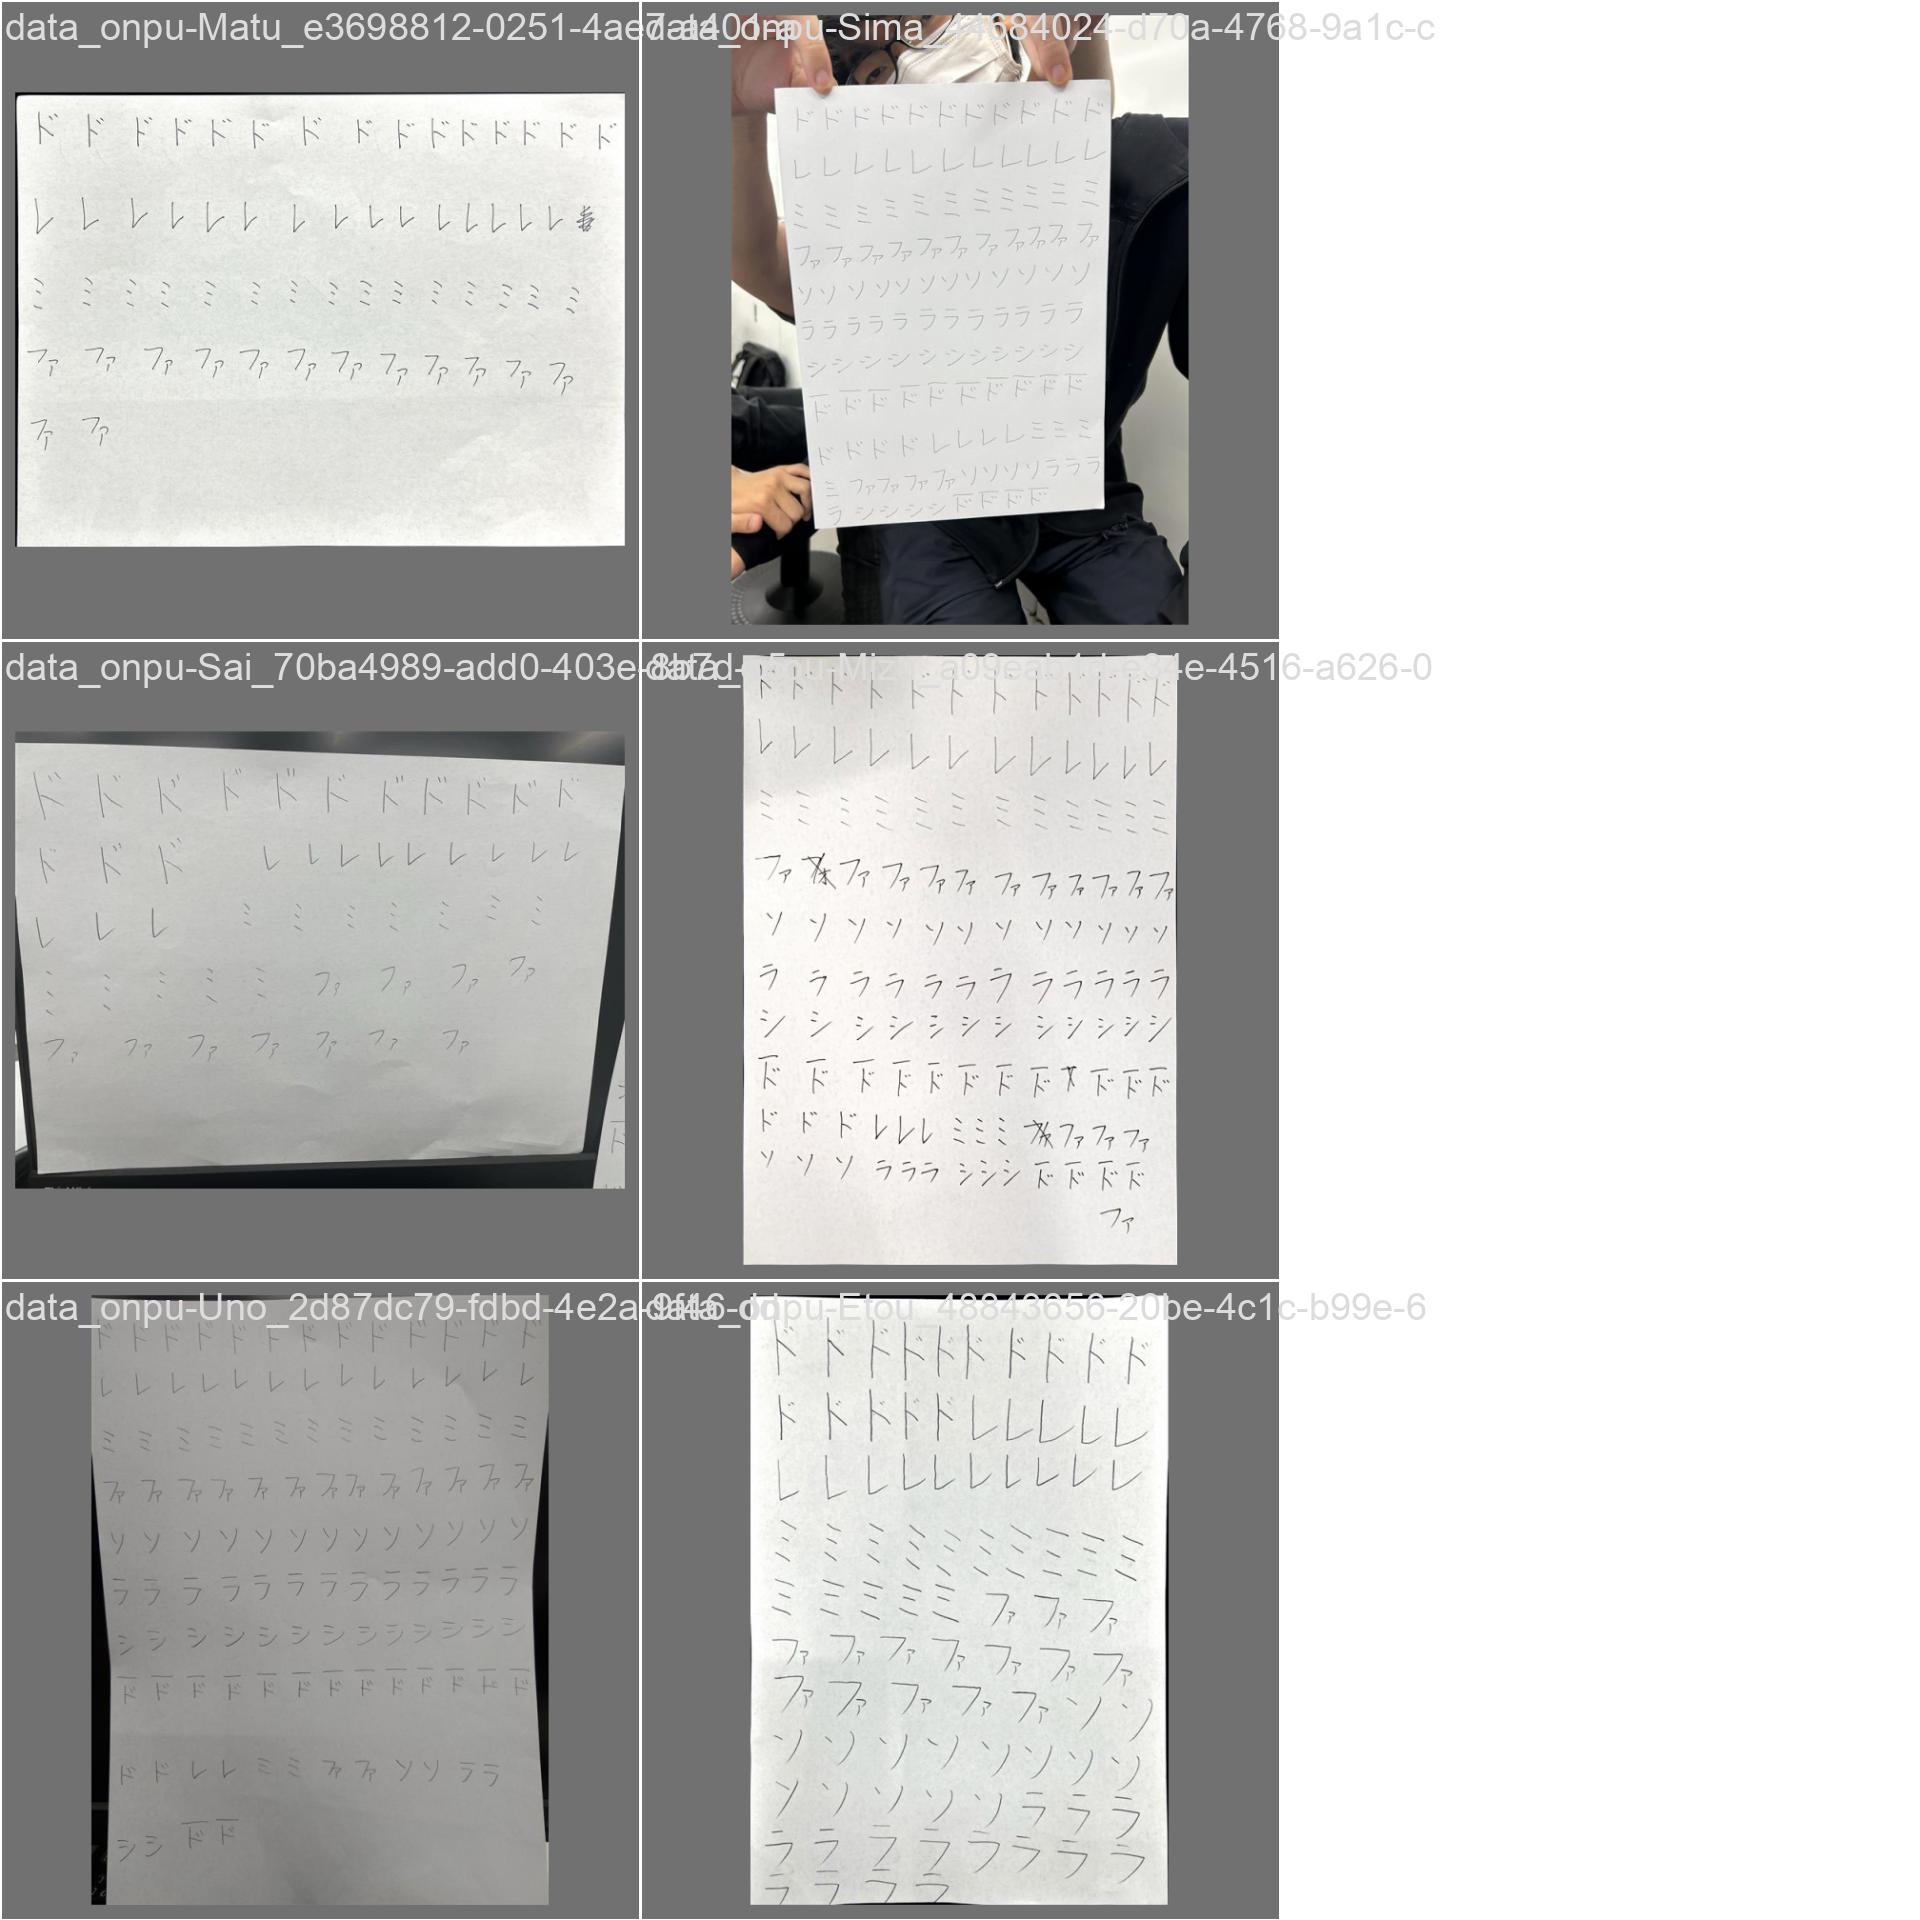 data_onpu-Matu_e3698812-0251-4ae7-a401-a
ド ド ド ド ド ド ド ド ド ド ド ド ド ド ド
レ レ レ レ レ レ レ レ レ レ レ レ レ レ レ
ミ ミ ミ ミ ミ ミ ミ ミ ミ ミ ミ ミ ミ ミ
ファ ファ ファ ファ ファ ファ ファ ファ ファ ファ ファ ファ
ファ ファ
data_onpu-Sima_44684024-d70a-4768-9a1c-c
ド ド ド ド ド ド ド ド ド ド ド
レ レ レ レ レ レ レ レ レ レ レ
ミ ミ ミ ミ ミ ミ ミ ミ ミ ミ ミ
ファ ファ ファ ファ ファ ファ ファ ファ ファ ファ ファ
ソ ソ ソ ソ ソ ソ ソ ソ ソ ソ ソ ソ
ラ ラ ラ ラ ラ ラ ラ ラ ラ ラ ラ ラ
シ シ シ シ シ シ シ シ シ シ シ
ド ド ド ド ド ド ド ド ド ド
ド ド ド ド レ レ レ レ ミ ミ ミ
ミ ファ ファ ファ ファ ソ ソ ソ ソ ラ ラ ラ
ラ シ シ シ シ ド ド ド ド
data_onpu-Sai_70ba4989-add0-403e-8bf7
ド ド ド ド ド ド ド ド ド ド ド
ド ド ド レ レ レ レ レ レ レ レ レ
レ レ レ ミ ミ ミ ミ ミ ミ ミ
ミ ミ ミ ミ ミ ファ ファ ファ ファ
ファ ファ ファ ファ ファ ファ ファ
ド ド ド ド ド ド ド ド ド ド ド ド
レ レ レ レ レ レ レ レ レ レ レ レ
ミ ミ ミ ミ ミ ミ ミ ミ ミ ミ ミ ミ
ファ ファ ファ ファ ファ ファ ファ ファ ファ ファ ファ
ソ ソ ソ ソ ソ ソ ソ ソ ソ ソ ソ ソ
ラ ラ ラ ラ ラ ラ ラ ラ ラ ラ ラ ラ
シ シ シ シ シ シ シ シ シ シ シ シ
ド ド ド ド ド ド ド ド ド ド ド
ド ド ド レ レ レ ミ ミ ミ ファ ファ ファ
ソ ソ ソ ラ ラ ラ シ シ シ ド ド ド ド
ファ
data_onpu-Uno_2d87dc79-fdbd-4e2a-9f46-d
ド ド ド ド ド ド ド ド ド ド ド ド ド
レ レ レ レ レ レ レ レ レ レ レ レ レ
ミ ミ ミ ミ ミ ミ ミ ミ ミ ミ ミ ミ ミ
ファ ファ ファ ファ ファ ファ ファ ファ ファ ファ ファ ファ ファ
ソ ソ ソ ソ ソ ソ ソ ソ ソ ソ ソ ソ ソ
ラ ラ ラ ラ ラ ラ ラ ラ ラ ラ ラ ラ ラ
シ シ シ シ シ シ シ シ シ シ シ シ シ
ド ド ド ド ド ド ド ド ド ド ド ド ド
ド ド レ レ ミ ミ ファ ファ ソ ソ ラ ラ
シ シ ド ド
data_onpu-Etou_48843656-20be-4c1c-b99e-6
ド ド ド ド ド ド ド ド ド ド
ド ド ド ド ド レ レ レ レ レ
レ レ レ レ レ レ レ レ レ レ
ミ ミ ミ ミ ミ ミ ミ ミ ミ ミ
ミ ミ ミ ミ ミ ファ ファ ファ
ファ ファ ファ ファ ファ ファ ファ
ファ ファ ファ ファ ファ ソ ソ
ソ ソ ソ ソ ソ ソ ソ ソ
ソ ソ ソ ソ ソ ラ ラ ラ
ラ ラ ラ ラ ラ ラ ラ ラ
ラ ラ ラ ラ